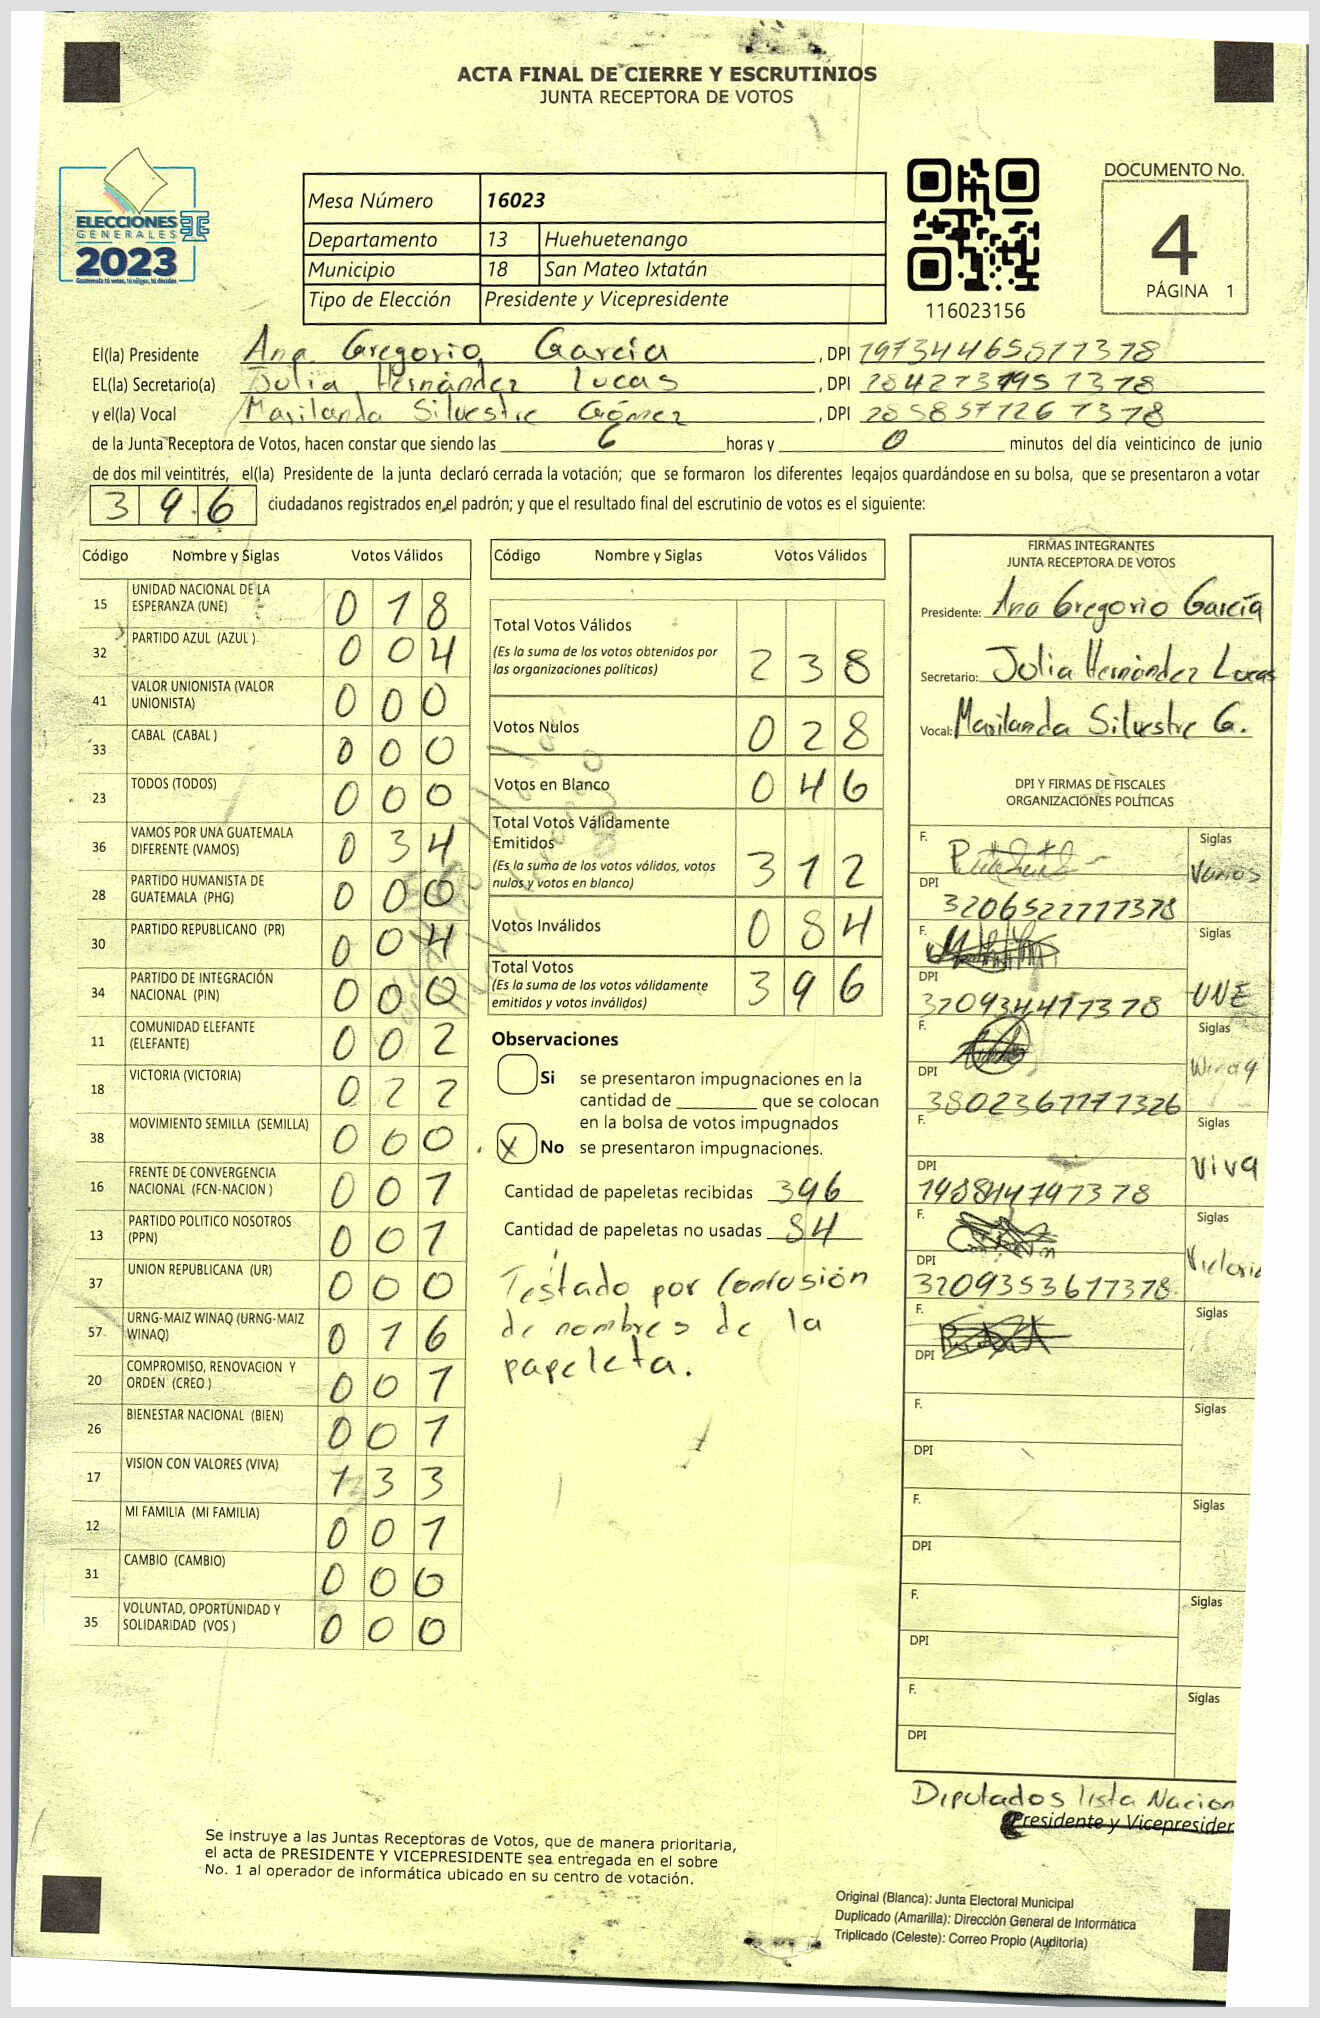 ACTA FINAL DE CIERRE Y ESCRUTINIOS
JUNTA RECEPTORA DE VOTOS
ELECCIONES
GENERALES
2023
Guatemala tú votas, tú eliges, tú decides
Mesa Número 16023
Departamento 13 Huehuetenango
Municipio 18 San Mateo Ixtatán
Tipo de Elección Presidente y Vicepresidente
116023156
DOCUMENTO No.
4
PÁGINA 1
El(la) Presidente Ana Gregorio García, DPI
EL(la) Secretario(a) Julia Hernández Lucas, DPI
y el(la) Vocal Marilanda Silvestre Gómez, DPI
de la Junta Receptora de Votos, hacen constar que siendo las 6 horas y 0 minutos del día veinticinco de junio
de dos mil veintitrés, el(la) Presidente de la junta declaró cerrada la votación; que se formaron los diferentes legajos guardándose en su bolsa, que se presentaron a votar
396 ciudadanos registrados en el padrón; y que el resultado final del escrutinio de votos es el siguiente:
Código Nombre y Siglas Votos Válidos
15 UNIDAD NACIONAL DE LA ESPERANZA (UNE) 018
32 PARTIDO AZUL (AZUL ) 004
41 VALOR UNIONISTA (VALOR UNIONISTA) 000
33 CABAL (CABAL ) 000
23 TODOS (TODOS) 000
36 VAMOS POR UNA GUATEMALA DIFERENTE (VAMOS) 034
28 PARTIDO HUMANISTA DE GUATEMALA (PHG) 000
30 PARTIDO REPUBLICANO (PR) 004
34 PARTIDO DE INTEGRACIÓN NACIONAL (PIN) 000
11 COMUNIDAD ELEFANTE (ELEFANTE) 002
18 VICTORIA (VICTORIA) 022
38 MOVIMIENTO SEMILLA (SEMILLA) 000
16 FRENTE DE CONVERGENCIA NACIONAL (FCN-NACION ) 001
13 PARTIDO POLITICO NOSOTROS (PPN) 001
37 UNION REPUBLICANA (UR) 000
57 URNG-MAIZ WINAQ (URNG-MAIZ WINAQ) 016
20 COMPROMISO, RENOVACION Y ORDEN (CREO ) 001
26 BIENESTAR NACIONAL (BIEN) 001
17 VISION CON VALORES (VIVA) 133
12 MI FAMILIA (MI FAMILIA) 001
31 CAMBIO (CAMBIO) 000
35 VOLUNTAD, OPORTUNIDAD Y SOLIDARIDAD (VOS ) 000
Código Nombre y Siglas Votos Válidos
Total Votos Válidos 238
(Es la suma de los votos obtenidos por
las organizaciones politicas)
Votos Nulos 028
Votos en Blanco 046
Total Votos Válidamente
Emitidos 312
(Es la suma de los votos válidos, votos
nulos y votos en blanco)
Votos Inválidos 084
Total Votos 396
(Es la suma de los votos válidamente
emitidos y votos inválidos)
Observaciones
Si se presentaron impugnaciones en la
cantidad de ________ que se colocan
en la bolsa de votos impugnados
X No se presentaron impugnaciones.
Cantidad de papeletas recibidas 396
Cantidad de papeletas no usadas 84
Testado por Confusión
de nombres de la
papeleta.
FIRMAS INTEGRANTES
JUNTA RECEPTORA DE VOTOS
Presidente: Ana Gregorio García
Secretario: Julia Hernández Lucas
Vocal: Marilanda Silvestre G.
DPI Y FIRMAS DE FISCALES
ORGANIZACIONES POLÍTICAS
F. Siglas
Vamos
DPI 3206522717378
F. Siglas
DPI UNE
F. Siglas
Winaq
DPI 3802367771326
F. Siglas
Viva
DPI
F. Siglas
Victoria
DPI 3209353677378
F. Siglas
DPI
F. Siglas
DPI
F. Siglas
DPI
F. Siglas
DPI
F. Siglas
DPI
Diputados lista Nacion
Presidente y Vicepresiden
Se instruye a las Juntas Receptoras de Votos, que de manera prioritaria,
el acta de PRESIDENTE Y VICEPRESIDENTE sea entregada en el sobre
No. 1 al operador de informática ubicado en su centro de votación.
Original (Blanca): Junta Electoral Municipal
Duplicado (Amarilla): Dirección General de Informática
Triplicado (Celeste): Correo Propio (Auditoría)